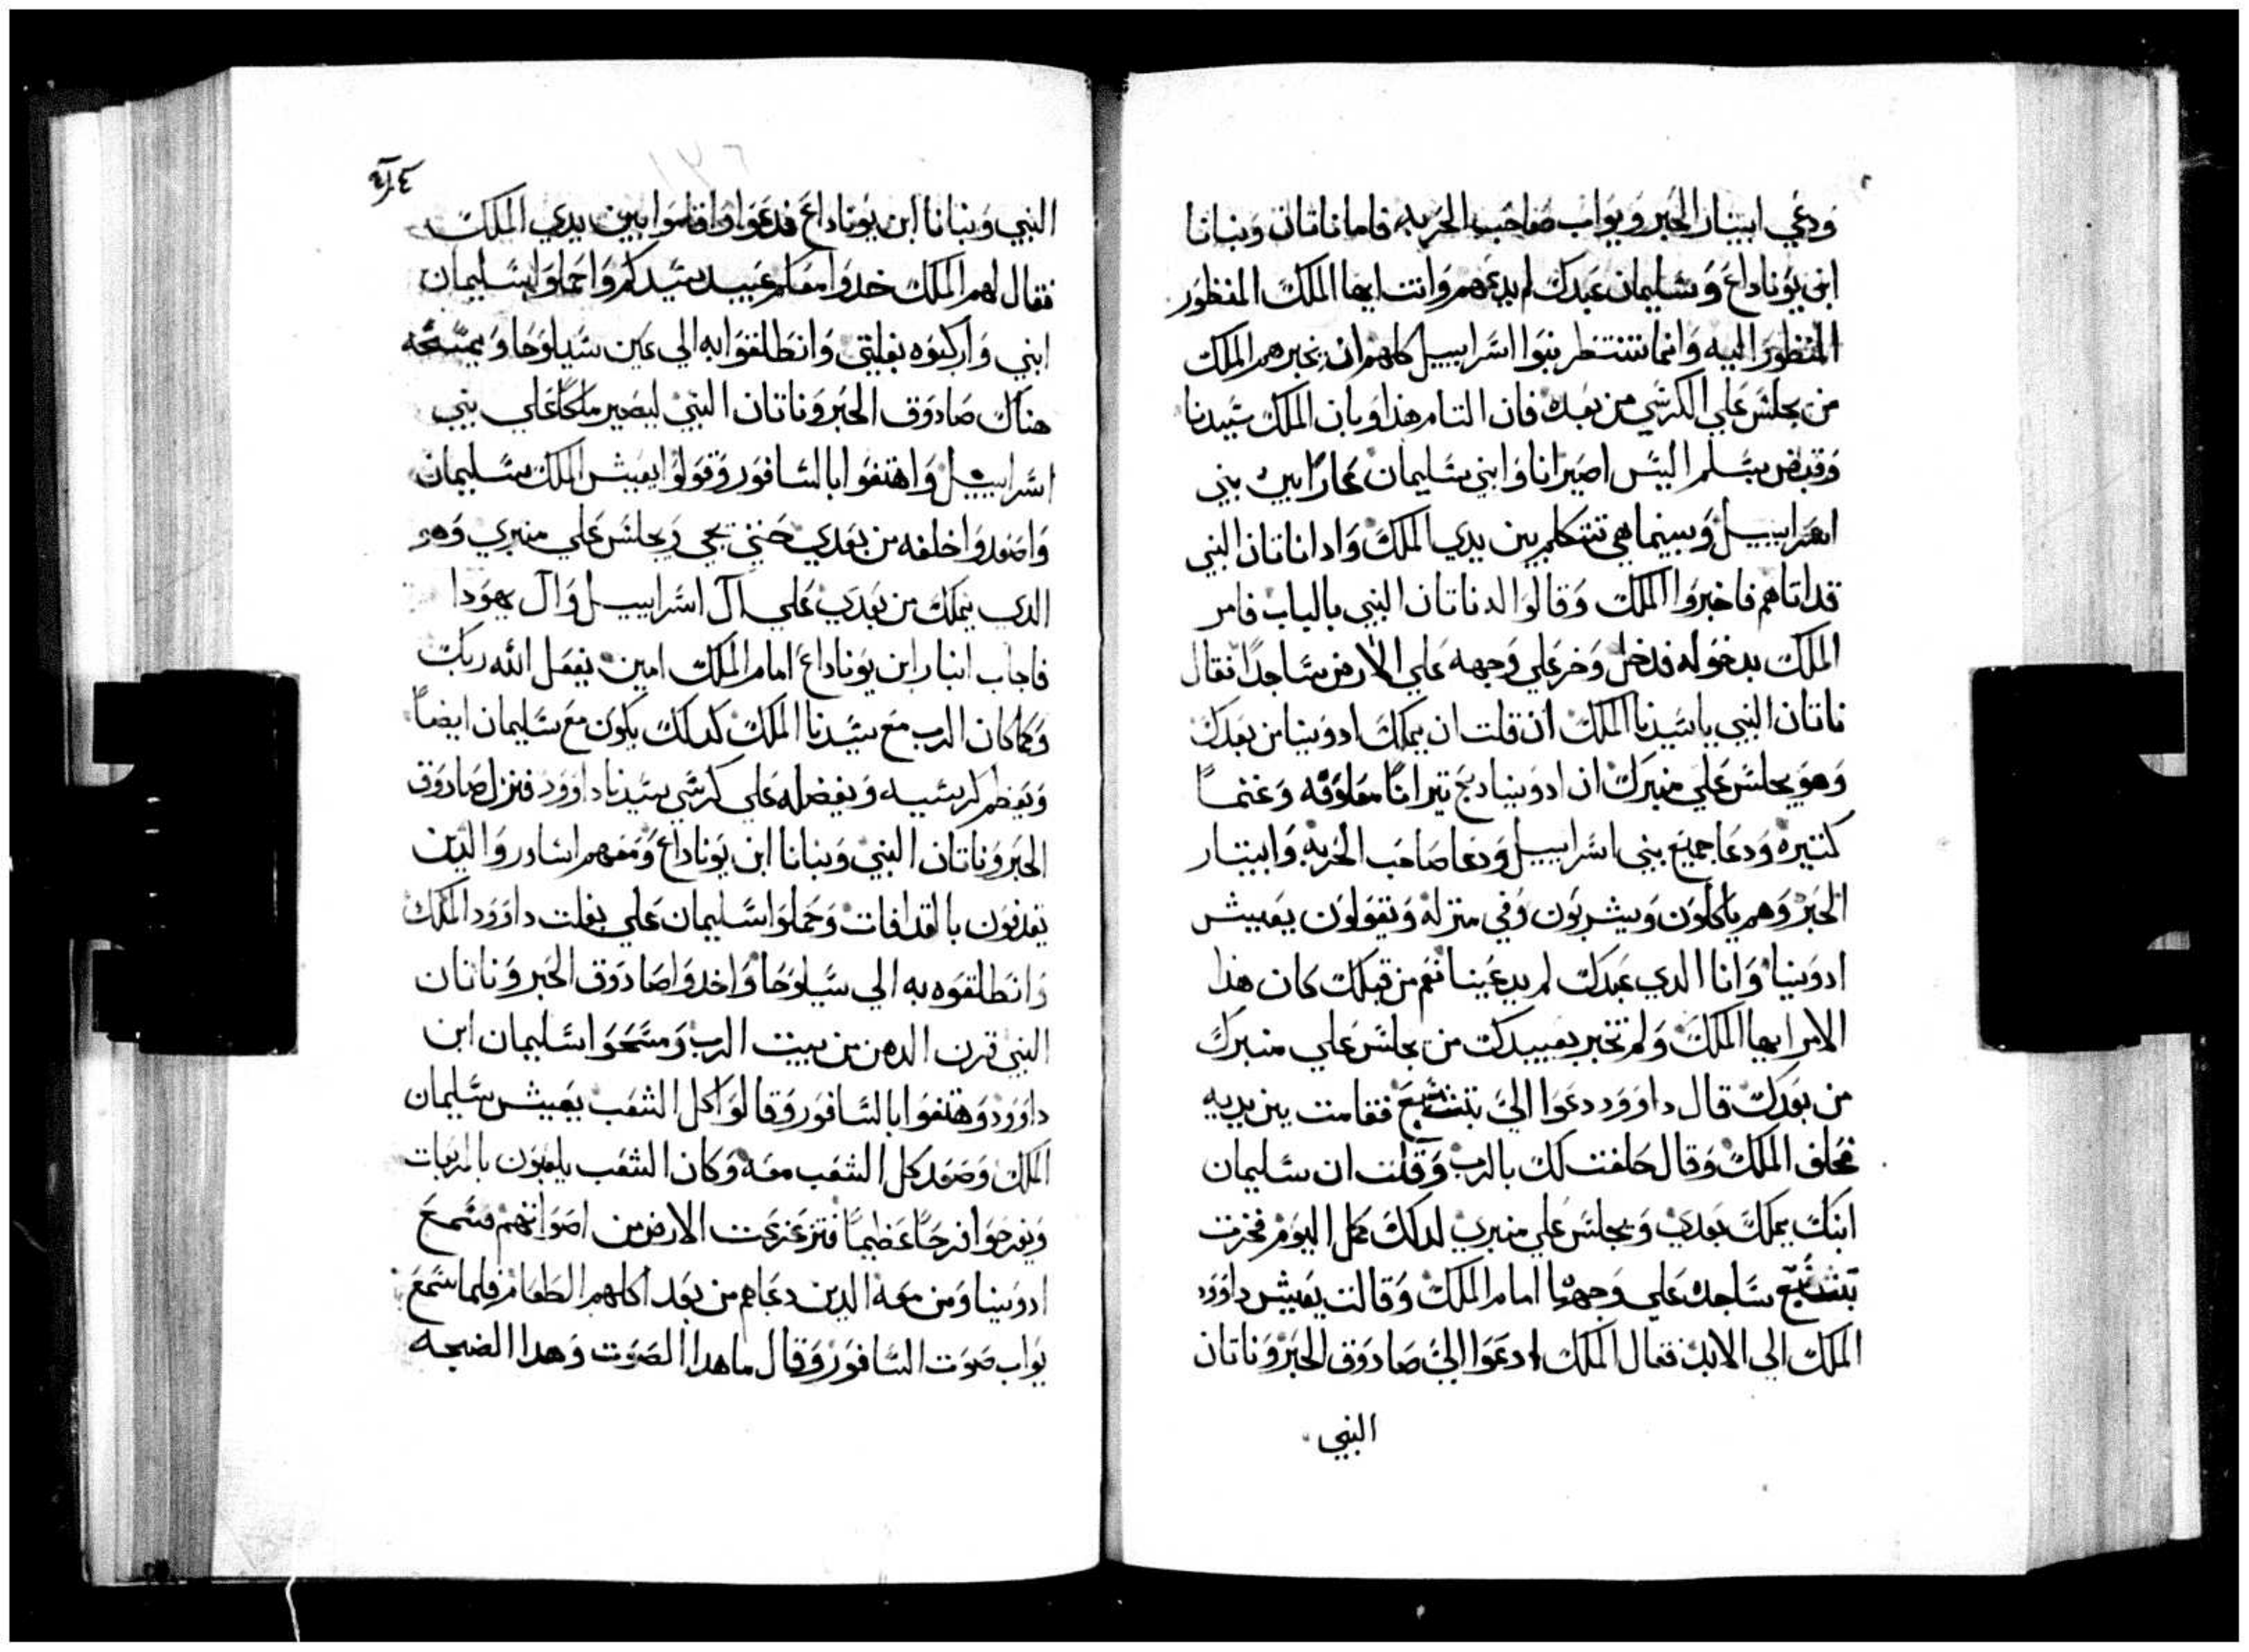 ودعي ابيثار الحبر ويواب صاحب الحربه فاما ناتان وبنانا
ابن يوناداع وسليمان عبدك لم يدعهم وانت ايها الملك المنظور
المنظور اليه وانما تنتظر بنوا اسراييل كلهم ان تخبرهم الملك
من يجلس علي الكرسي من بعدك فان التام هذا وبان الملك سيدنا
وقبض بسلم اليس اصير انا وابني سليمان عارًا بين بني
اسراييل وبينما هي تتكلم بين يدي الملك وادا ناتان النبي
قد اتاهم فاخبروا الملك وقالوا له ناتان النبي بالباب فامر
الملك بدخوله فدخل وخر علي وجهه علي الارض ساجدًا فقال
ناتان النبي يا سيدنا الملك ان قلت ان يملك ادونيا من بعدك
وهو يجلس علي منبرك ان ادونيا دبح تيرانًا معلوفه وغنمًا
كتيره ودعا جميع بني اسراييل ودعا صاحب الحربه وابيتار
الحبر وهم ياكلون ويشربون وفي منزله ويقولون يعيش
ادونيا وانا الدي عبدك لم يدعينا نعم من قبلك كان هذا
الامر ايها الملك ولم تخبر بعبيدك من يجلس علي منبرك
من بعدك قال داوود دعوا الي بتشبع فقامت بين يديه
فحلف الملك وقال حلفت لك بالرب وقلت ان سليمان
ابنك يملك بعدي ويجلس علي منبري لدلك كمل اليوم فخرت
بتشبع ساجده علي وجهها امام الملك وقالت يعيش داوود
الملك الي الابد فقال الملك ادعوا الي صادوق الحبر وناتان
النبي
٤١٤
النبي وبنانا ابن يوناداع فدعوا واقاموا بين يدي الملك
فقال لهم الملك خدوا معكم عبيد سيدكم واحملوا سليمان
ابني واركبوه بغلتي وانطلقوا به الي عين سيلوحا ويمسحه
هناك صادوق الحبر وناتان النبي ليصير ملكًا علي بني
اسراييل واهتفوا بالسافور وقولوا يعيش الملك سليمان
واصعدوا خلفه من بعدي حتي يجي ويجلس علي منبري وهو
الدي يملك من بعدي علي آل اسراييل وآل يهودا
فاجاب ابن يوناداع امام الملك امين يفعل الله ربك
وكما كان الرب مع سيدنا الملك كدلك يكون مع سليمان ايضًا
ويعظم كرسيه ويفضله علي كرسي سيدنا داوود فنزل صادوق
الحبر وناتان النبي وبنانا ابن يوناداع ومعهم اسادر والدين
يقدفون بالقدافات وحملوا سليمان علي بغلت داوود الملك
وانطلقوه به الي سيلوحا واخدوا صادوق الحبر وناتان
النبي قرن الدهن من بيت الرب ومسحوا سليمان ابن
داوود وهتفوا بالسافور وقالوا كل الشعب يعيش سليمان
الملك وصعد كل الشعب معه وكان الشعب يلعبون بالمربعات
ويفرحوا فرحًا عظيمًا فتزعزعت الارض من اصواتهم فسمع
ادونيا ومن معه الدين دعاهم من بعد اكلهم الطعام فلما سمع
يواب صوت السافور وقال ما هدا الصوت وهدا الضجه